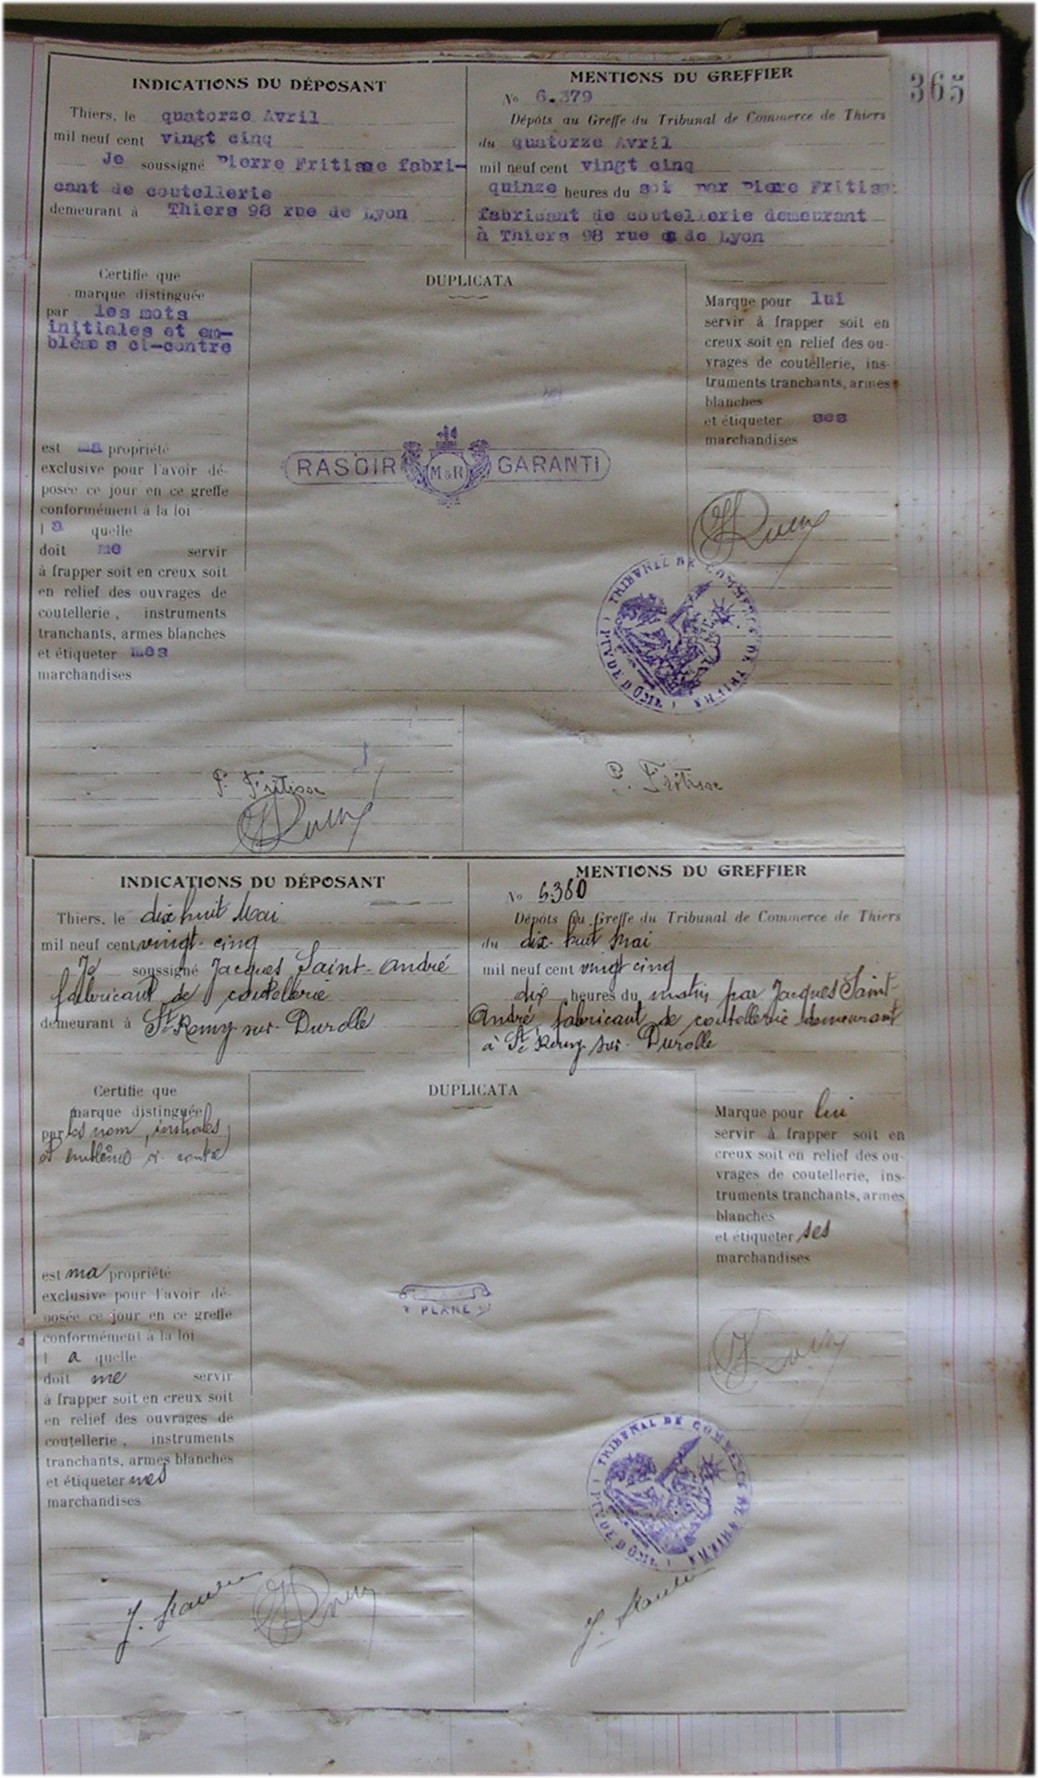 365
INDICATIONS DU DÉPOSANT
Thiers, le quatorze Avril
mil neuf cent vingt cinq
Je soussigné Pierre Fritisse fabri-
cant de coutellerie
demeurant à Thiers 98 rue de Lyon
MENTIONS DU GREFFIER
No 6.379
Dépôts au Greffe du Tribunal de Commerce de Thiers
du quatorze Avril
mil neuf cent vingt cinq
quinze heures du soir par Pierre Fritiss
fabricant de coutellerie demeurant
à Thiers 98 rue de Lyon
Certifie que
marque distinguée
par les mots
initiales et em-
blèmes ci-contre
est ma propriété
exclusive pour l'avoir dé-
posée ce jour en ce greffe
conformément à la loi
l a quelle
doit me servir
à frapper soit en creux soit
en relief des ouvrages de
coutellerie, instruments
tranchants, armes blanches
et étiqueter mes
marchandises
DUPLICATA
RASOIR M&R GARANTI
Marque pour lui
servir à frapper soit en
creux soit en relief des ou-
vrages de coutellerie, ins-
truments tranchants, armes
blanches
et étiqueter ses
marchandises
TRIBUNAL DE COMMERCE DE THIERS
(PUY DE DÔME)
P. Fritisse
P. Fritisse
INDICATIONS DU DÉPOSANT
Thiers, le dix huit Mai
mil neuf cent vingt-cinq
Je soussigné Jacques Saint-André
fabricant de coutellerie
demeurant à St Remy sur Durolle
MENTIONS DU GREFFIER
No 6380
Dépôts au Greffe du Tribunal de Commerce de Thiers
du dix-huit Mai
mil neuf cent vingt cinq
dix heures du matin par Jacques Saint-
André fabricant de coutellerie demeurant
à St Remy sur Durolle
Certifie que
marque distinguée
par les nom, initiales
et emblème ci-contre
est ma propriété
exclusive pour l'avoir dé-
posée ce jour en ce greffe
conformément à la loi
l a quelle
doit me servir
à frapper soit en creux soit
en relief des ouvrages de
coutellerie, instruments
tranchants, armes blanches
et étiqueter mes
marchandises
DUPLICATA
PLANE
Marque pour lui
servir à frapper soit en
creux soit en relief des ou-
vrages de coutellerie, ins-
truments tranchants, armes
blanches
et étiqueter ses
marchandises
TRIBUNAL DE COMMERCE DE THIERS
(PUY DE DÔME)